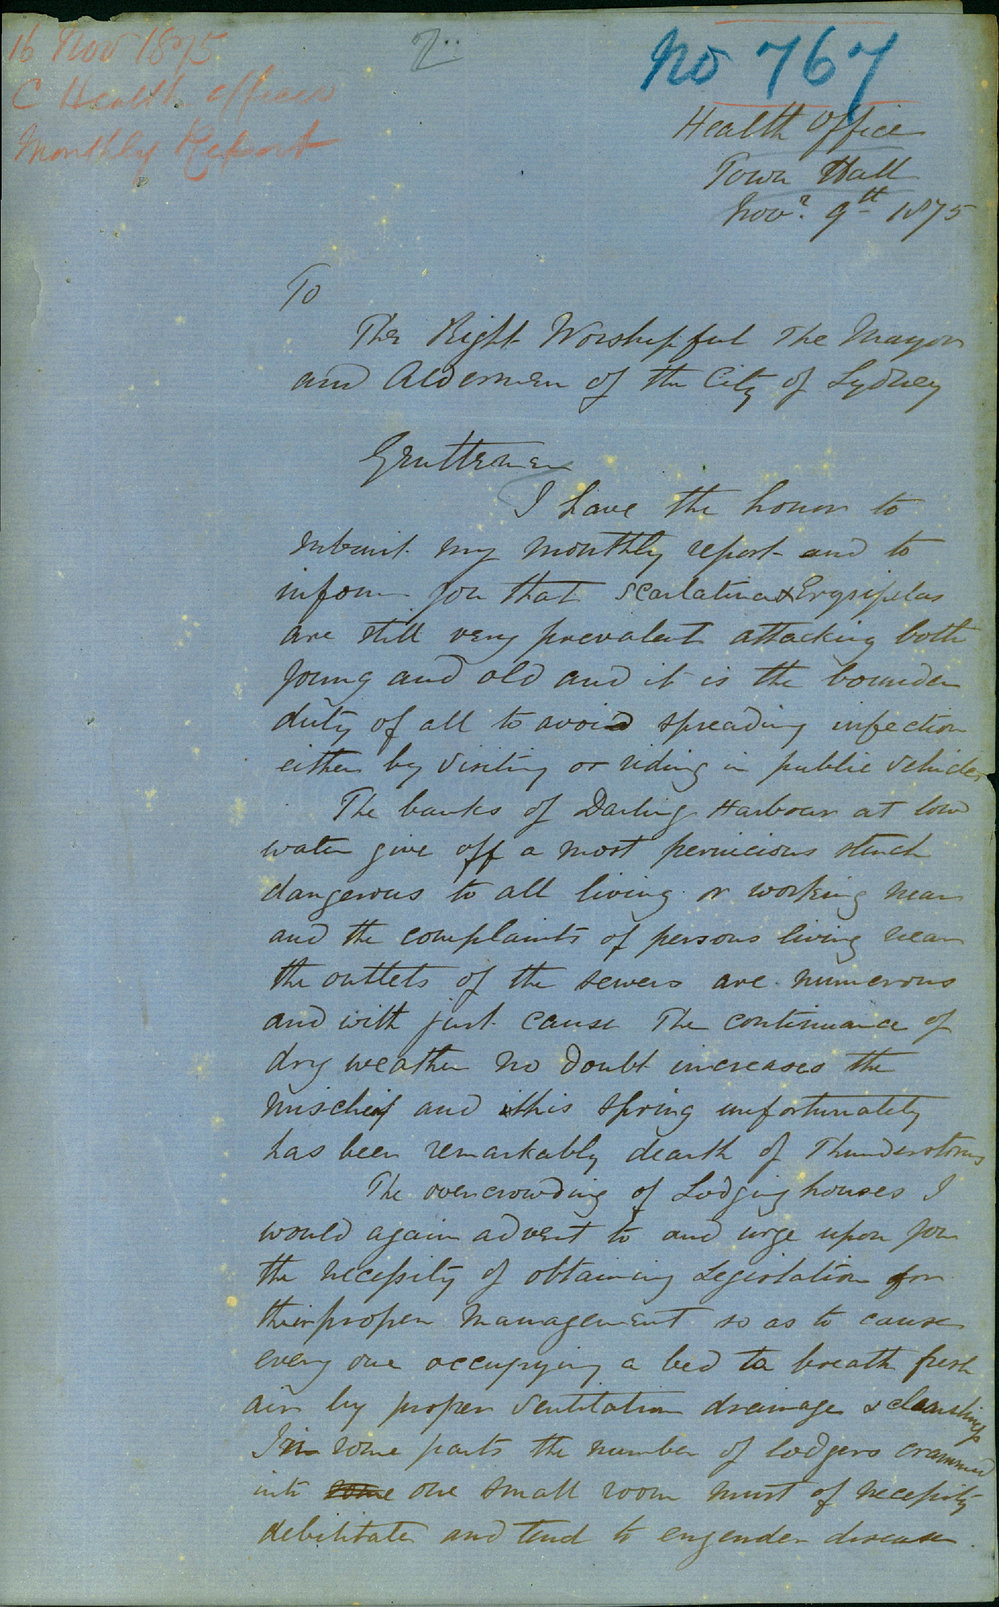 16 Nov 1875
C Health officer
Monthly Report
2
No 767
Health Office
Town Hall
Novr. 9th 1875
To
The Right Worshipful The Mayor
and Aldermen of the City of Sydney
Gentlemen
I have the honor to
submit my monthly report and to
inform you that Scarlatina & Erysipelas
are still very prevalent attacking both
young and old and it is the bounden
duty of all to avoid spreading infection
either by visiting or riding in public vehicles
The banks of Darling Harbour at low
water give off a most pernicious stench
dangerous to all living or working near
and the complaints of persons living near
the outlets of the sewers are numerous
and with just cause The continuance of
dry weather no doubt increases the
mischief and this spring unfortunately
has been remarkably dearth of Thunderstorms
The overcrowding of Lodging houses I
would again advert to and urge upon you
the necessity of obtaining Legislation for
their proper management so as to cause
every one occupying a bed to breath fresh
air by proper ventilation drainage & cleansings
In some parts the number of lodgers crammed
into some one small room must of necessity
debilitate and tend to engender disease